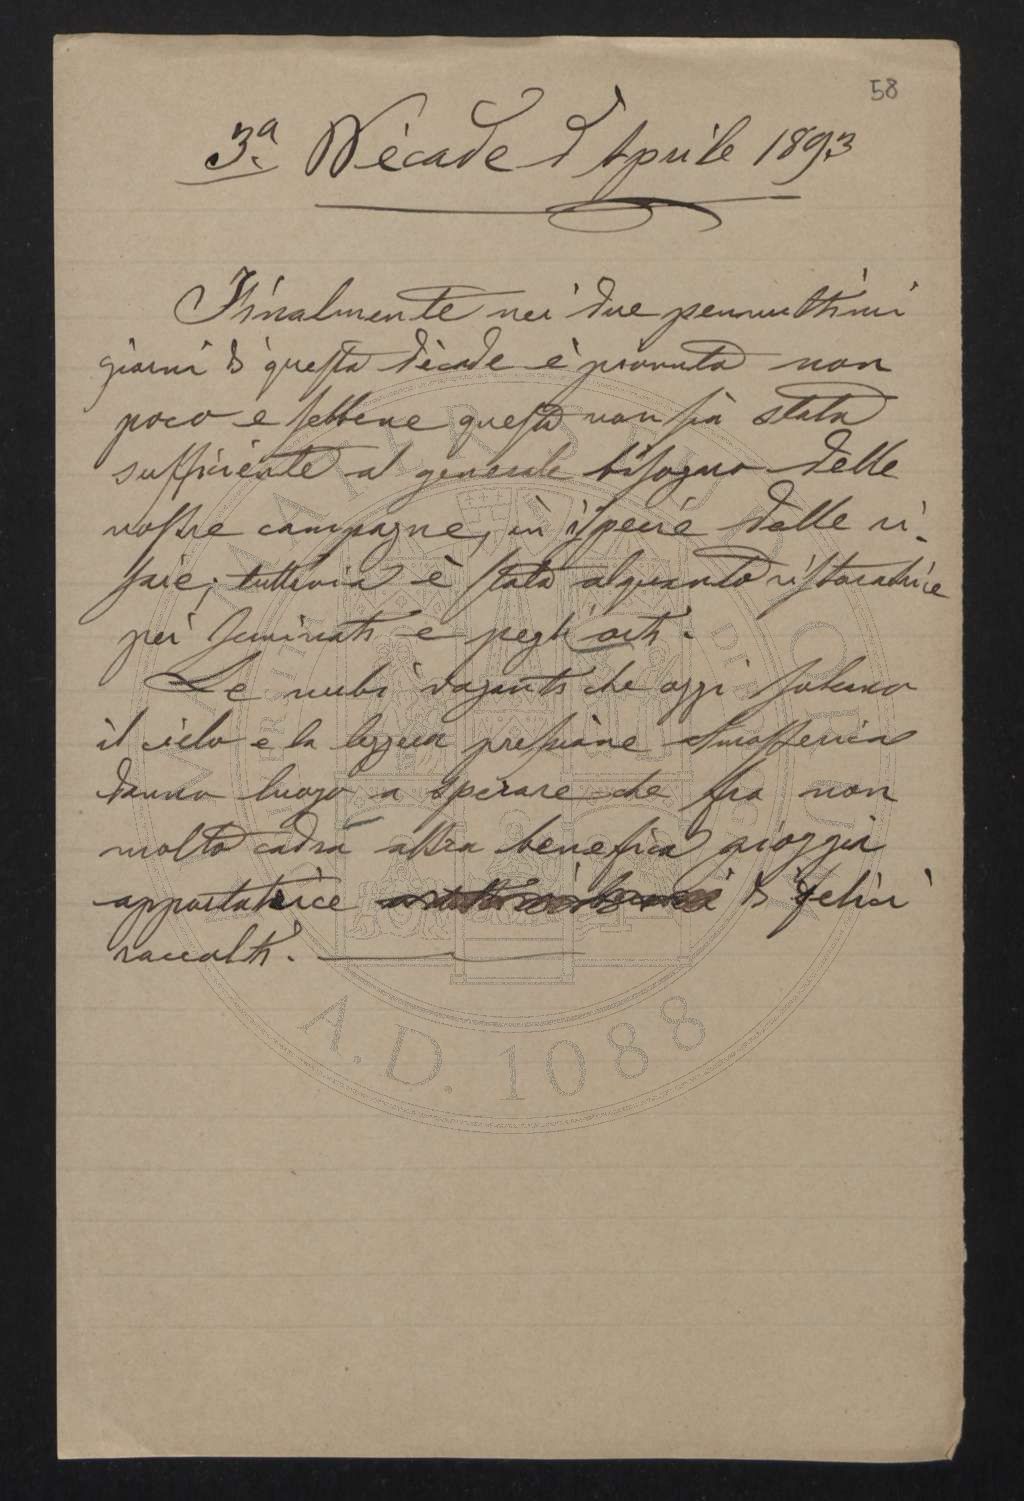 58
3ª Dècade d'Aprile 1893
Finalmente nei due pennulttimi
giorni di questa dècade è piovuto non
poco e sebbene questa non sia stata
sufficiente al generale bisogno delle
nostre campagne, in ispecie delle ri-
saie; tuttavia è stata alquanto ristoratrice
pei seminati e pegli orti.
Le nubi vaganti che oggi solcano
il cielo e la leggera pressione atmosferica
danno luogo a sperare che fra non
molto cadrà altra benefica pioggia
apportatrice di felici
raccolti.
A.D. 1088